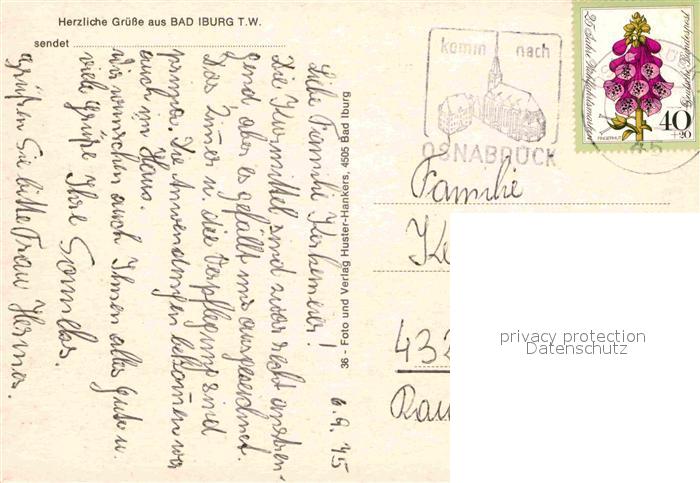 Herzliche Grüße aus BAD IBURG T.W.
sendet
6.9.75
Liebe Familie Kerkemeier!
Die Kurmittel sind zwar recht anstren-
gend aber es gefällt uns ausgezeichnet.
Das Zimer u. die Verpflegung sind
prima. Die Anwendungen bekomen wir
auch im Haus.
Wir wünschen auch Ihnen alles Gute u.
viele Grüße Ihre
Grüßen Sie bitte Frau Hermes.
36 - Foto und Verlag Huster-Hankers, 4505 Bad Iburg
komm nach
OSNABRÜCK
25 Jahre Wohlfahrtsmarken
Deutsche Bundespost
FINGERHUT
40
+20
Familie
Ke
432
Rau
privacy protection
Datenschutz